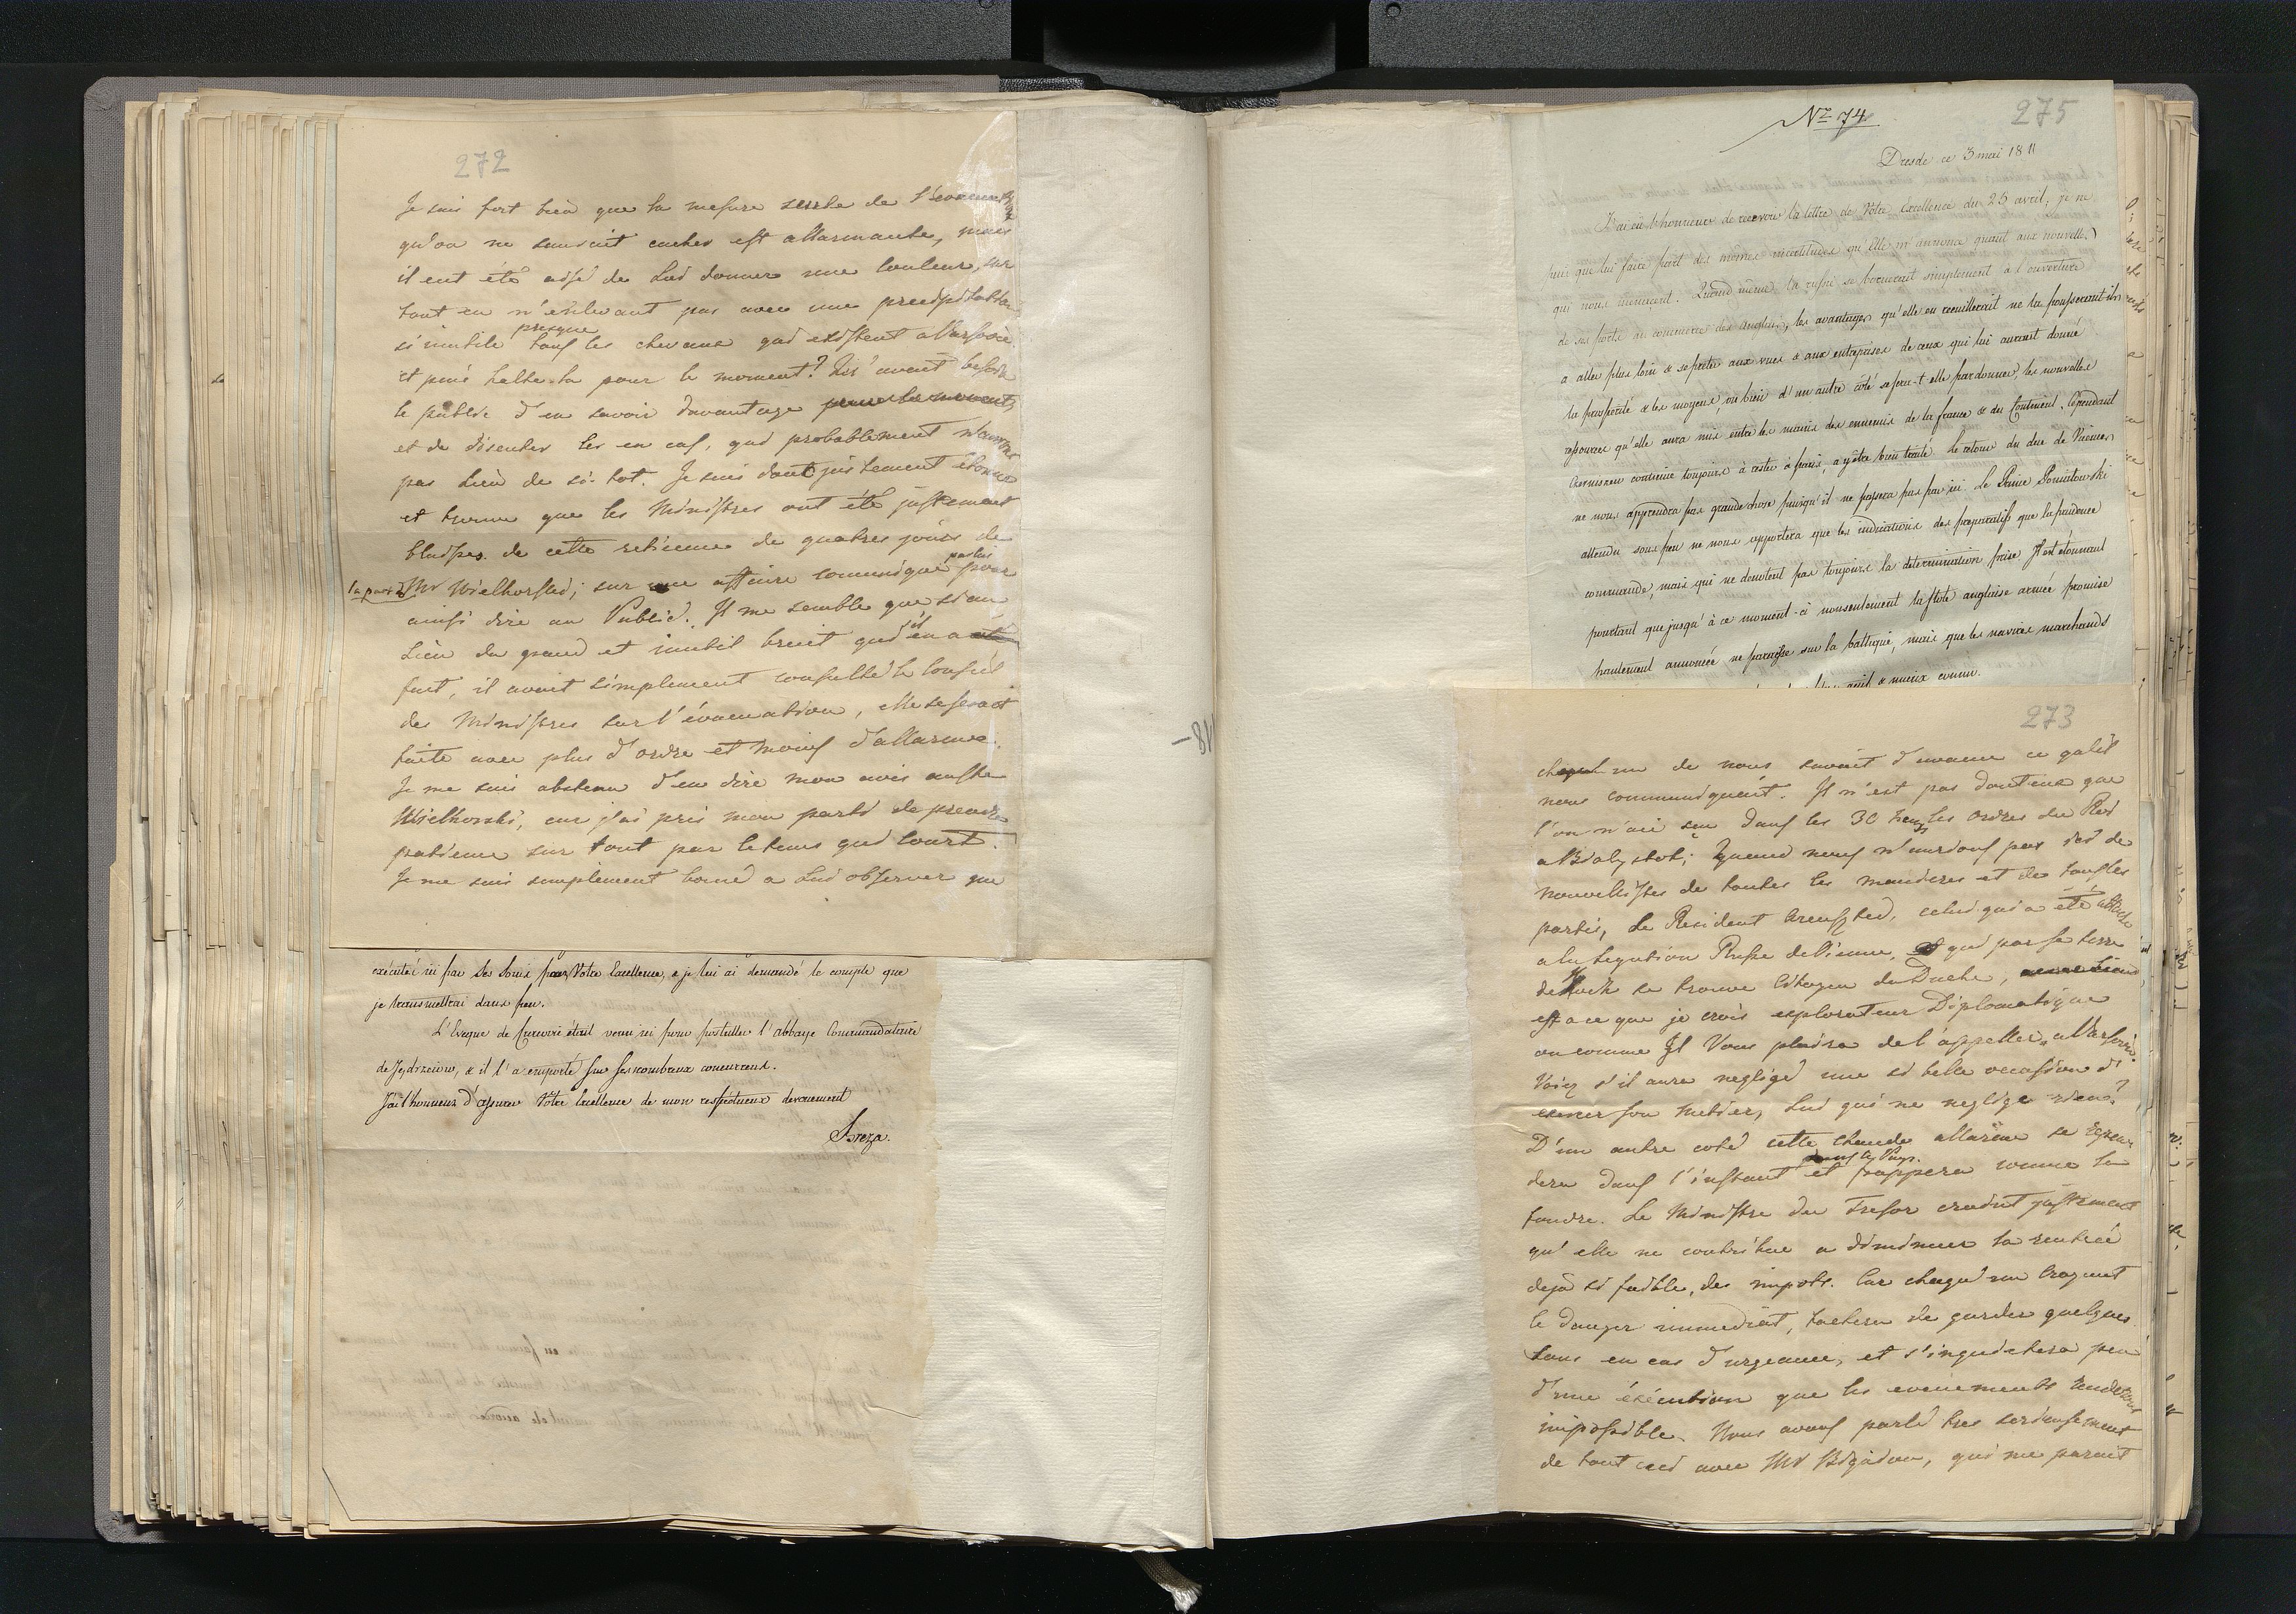 272
Je sais fort bien que la mesure seule de l'evacuation
qu'on ne sauroit cacher est allarmante, mais
il eut été aisé de Lui donner une couleur, sur
tout en n'enlevant pas avec une precipitation
si inutile presque tous les chevaux qui existent a Varsovie
et puis halte-la pour le moment? Qu'avait besoin
le public d'en savoir davantage pour le moment,
et de discuter les en cas, qui probablement n'auront
pas Lieu de si-tot. Je suis dont justement etonné
et trouve que les Ministres ont été justement
blessés de cette reticence de quatres jours de
la part de Mr Wielhorski; sur une affaire comuniqué par lui pour
ainsi dire au Public. Il me semble que, si au
Lieu du grand et inutil bruit qu'il en a
fait, il avait simplement consulté le Conseil
des Ministres sur l'évacuation, elle se serait
faite avec plus d'ordre et moins d'allarme.
Je me suis abstenu d'en dire mon avis au Sr
Wielhorski, car j'ai pris mon parti de prendre
patience sur tout par le tems qui court.
Je me suis simplement borné a Lui observer que
exécutés ici par les soins pour Votre Excellence, & je lui ai demandé le compte que
je transmettrai dans peu.
L'Evêque de Cracovie était venu ici pour postuller l'abbaye Commandataire
de Jędrzeiow, & il l'a emporté sur ses nombreux concurrens.
J'ai l'honneur d'assurer Votre Excellence de mon respectueux devouement
Breza.
-81
Nr 74
275
Dresde ce 3 mai 1811
J'ai eu l'honneur de recevoir la lettre de Votre Excellence du 25 avril; je ne
puis que lui faire part des mêmes incertitudes qu'Elle m'annonce quant aux nouvelles
qui nous menacent. Quand même la russie se borneroit simplement à l'ouverture
de ses ports au commerce des Anglais, les avantages qu'elle en receuillerait ne la pousseront-ils
a aller plus loin & se prêter aux vues & aux entreprises de ceux qui lui auront donné
la prosperité & les moyens, ou bien d'un autre côté se fera-t-elle pardonner, les nouvelles
ressources qu'elle aura mis entre les mains des ennemis de la france & du Continent. Cependant
Czernszew continue toujours à rester à paris, a y être bien traité. Le retour du duc de Vicence
ne nous apprendra pas grande chose puisqu'il ne passera pas par ici. Le Prince Poniatowski
attendu sous peu ne nous apportera que les indications des preparatifs que la prudence
commande, mais qui ne denotent pas toujours la determination prise. Il est étonnant
pourtant que jusqu'à ce moment-ci nonseulement la flote anglaise armée promise
hautement annoncée ne paroisse sur la baltique, mais que les navires marchands
& mieux connu.
273
chaqu'un de nous savait d'avance ce qu'il
nous communiquait. Il n'est pas douteux que
l'on n'aie su dans les 30 heures les ordres du Roi
a Bialystok; quand nous n'aurions pas ici de
nouvellistes de toutes les manieres et de tous les
partis, Le Resident celui qui a été attaché
a la Legation Russe de Vienne, et qui par sa terre
de se trouve Citoyen du Duché,
est a ce que je crois explorateur Diplomatique
ou comme Il Vous plaira de l'appeller, a Varsovie.
Voiez s'il aura negligé une si belle occasion d'
exercer son metier, Lui qui ne neglige rien?
D'un autre coté cette chaude allarme se repan-
dera dans l'instant dans le Pays. et frappera comme la
foudre. Le Ministre du Tresor craint justement
qu'elle ne contribue a diminuer la rentrée
dejà si faible, des impots. Car chaqu'un croyant
le danger immediat, tachera de garder quelques
sous en cas d'urgence, et s'inquietera peu
d'une éxécution que les evenements rendront
impossible. Nous avons parlé tres serieusement
de tout ceci avec Mr Bignon, qui me parait